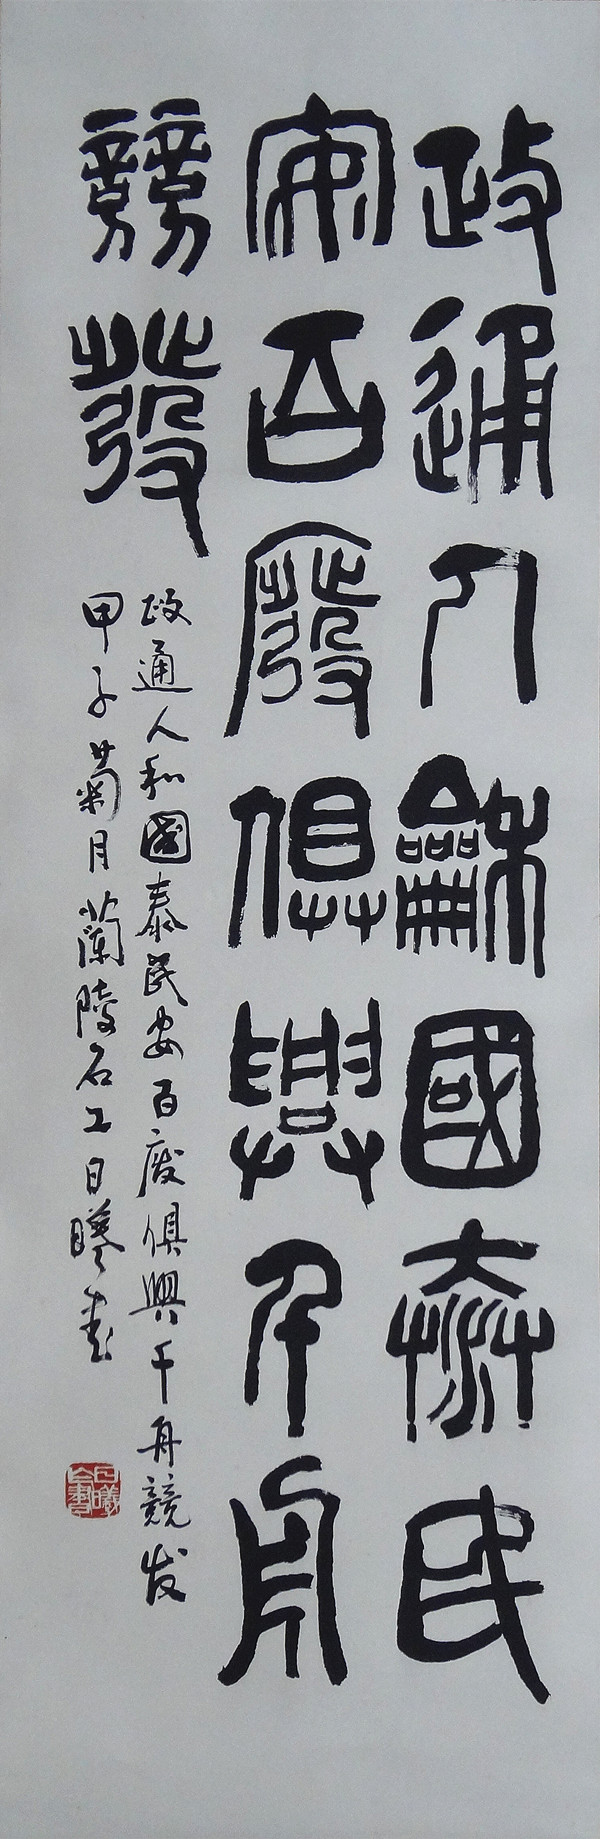 政通人龢國泰民
安百廢俱興千舟
競發
政通人和國泰民安百废俱興千舟競发
甲子菊月蘭陵石工日曦书
日曦
之書